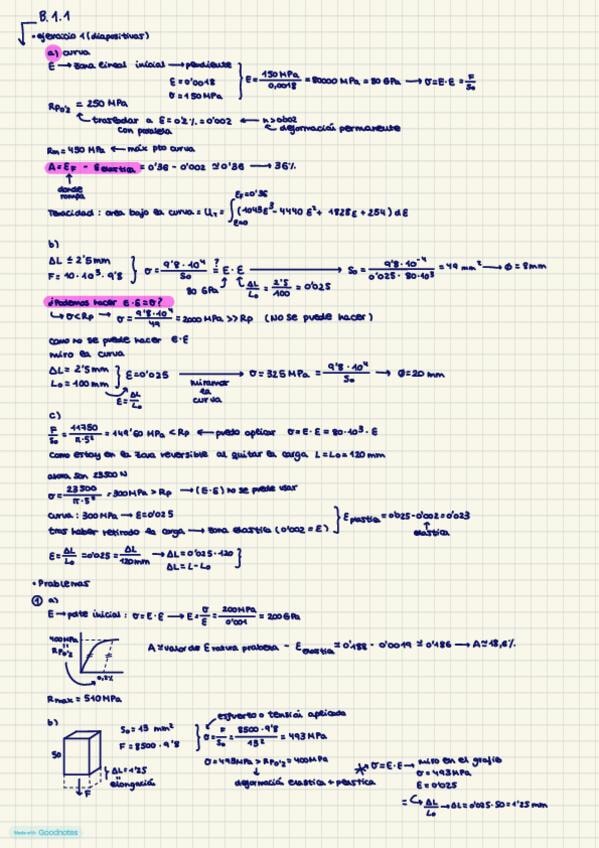 B.1.1
• ejercicio 1 (diapositivas)
a) curva
E → zona lineal inicial → pendiente
ε = 0'0018
σ = 150 MPa } E = 150 MPa / 0,0018 = 80000 MPa = 80 GPa → σ = E·ε = F/S₀
Rp₀'₂ = 250 MPa
↳ trasladar a ε = 0'2% = 0'002 ←
con paralela ↖ deformación permanente
Rm = 450 MPa ← máx pto curva
A = εF - εelastica = 0'36 - 0'002 ≈ 0'36 → 36%
↑
donde
rompa
Tenacidad: area bajo la curva = UT = ∫ ε=0 εf=0'36 (1043ε³ - 4440 ε² + 1828ε + 254) dε
b)
ΔL ≤ 2'5mm
F = 10·10³·9'8 } σ = 9'8·10⁴ / S₀ =? E·ε → S₀ = 9'8·10⁻⁴ / 0'025·80·10³ = 49 mm² → φ = 8mm
80 GPa ΔL/L₀ = 2'5/100 = 0'025
¿Podemos hacer E·ε = σ?
↳ σ < Rp → σ = 9'8·10⁴ / 49 = 2000 MPa >> Rp (NO se puede hacer)
como no se puede hacer E·ε
miro la curva
ΔL = 2'5mm
L₀ = 100 mm } ε = 0'025 → σ = 325 MPa = 9'8·10⁴ / S₀ → φ = 20 mm
ε = ΔL/L₀ miramos
la
curva
c)
F/S₀ = 11750 / π·5² = 149'60 MPa < Rp ← puedo aplicar σ = E·ε = 80·10³·ε
como estoy en la zona reversible al quitar la carga L = L₀ = 120 mm
ahora son 23500 N
σ = 23500 / π·5² = 300MPa > Rp → (E·ε) no se puede usar
curva: 300 MPa → ε = 0'025
tras haber retirado la carga → zona elastica (0'002 = ε) } εplastica = 0'025 - 0'002 = 0'023
↑
elastica
ε = ΔL/L₀ = 0'025 = ΔL/120mm → ΔL = 0'025·120
ΔL = L - L₀ }
• Problemas
① a)
E → parte inicial: σ = E·ε → E = σ/ε = 200MPa / 0'001 = 200 GPa
400MPa
Rp₀'₂
0,2%
A ≈ valor de ε rotura probeta - εelastica ≈ 0'188 - 0'0019 ≈ 0'186 → A ≈ 18,6%
Rmax = 510 MPa
b)
esfuerzo o tensión aplicada
S₀ = 13 mm²
F = 8500·9'8 } σ = F/S₀ = 8500·9'8 / 13² = 493 MPa
S₀
ΔL = 1'25
elongación
F
σ = 493MPa > Rp₀'₂ = 400MPa
↓
deformación elastica + plastica
σ = E·ε → miro en el grafico
σ = 493MPa
ε = 0'025
= ↳ ΔL/L₀ → ΔL = 0'025·50 = 1'25 mm
Made with Goodnotes